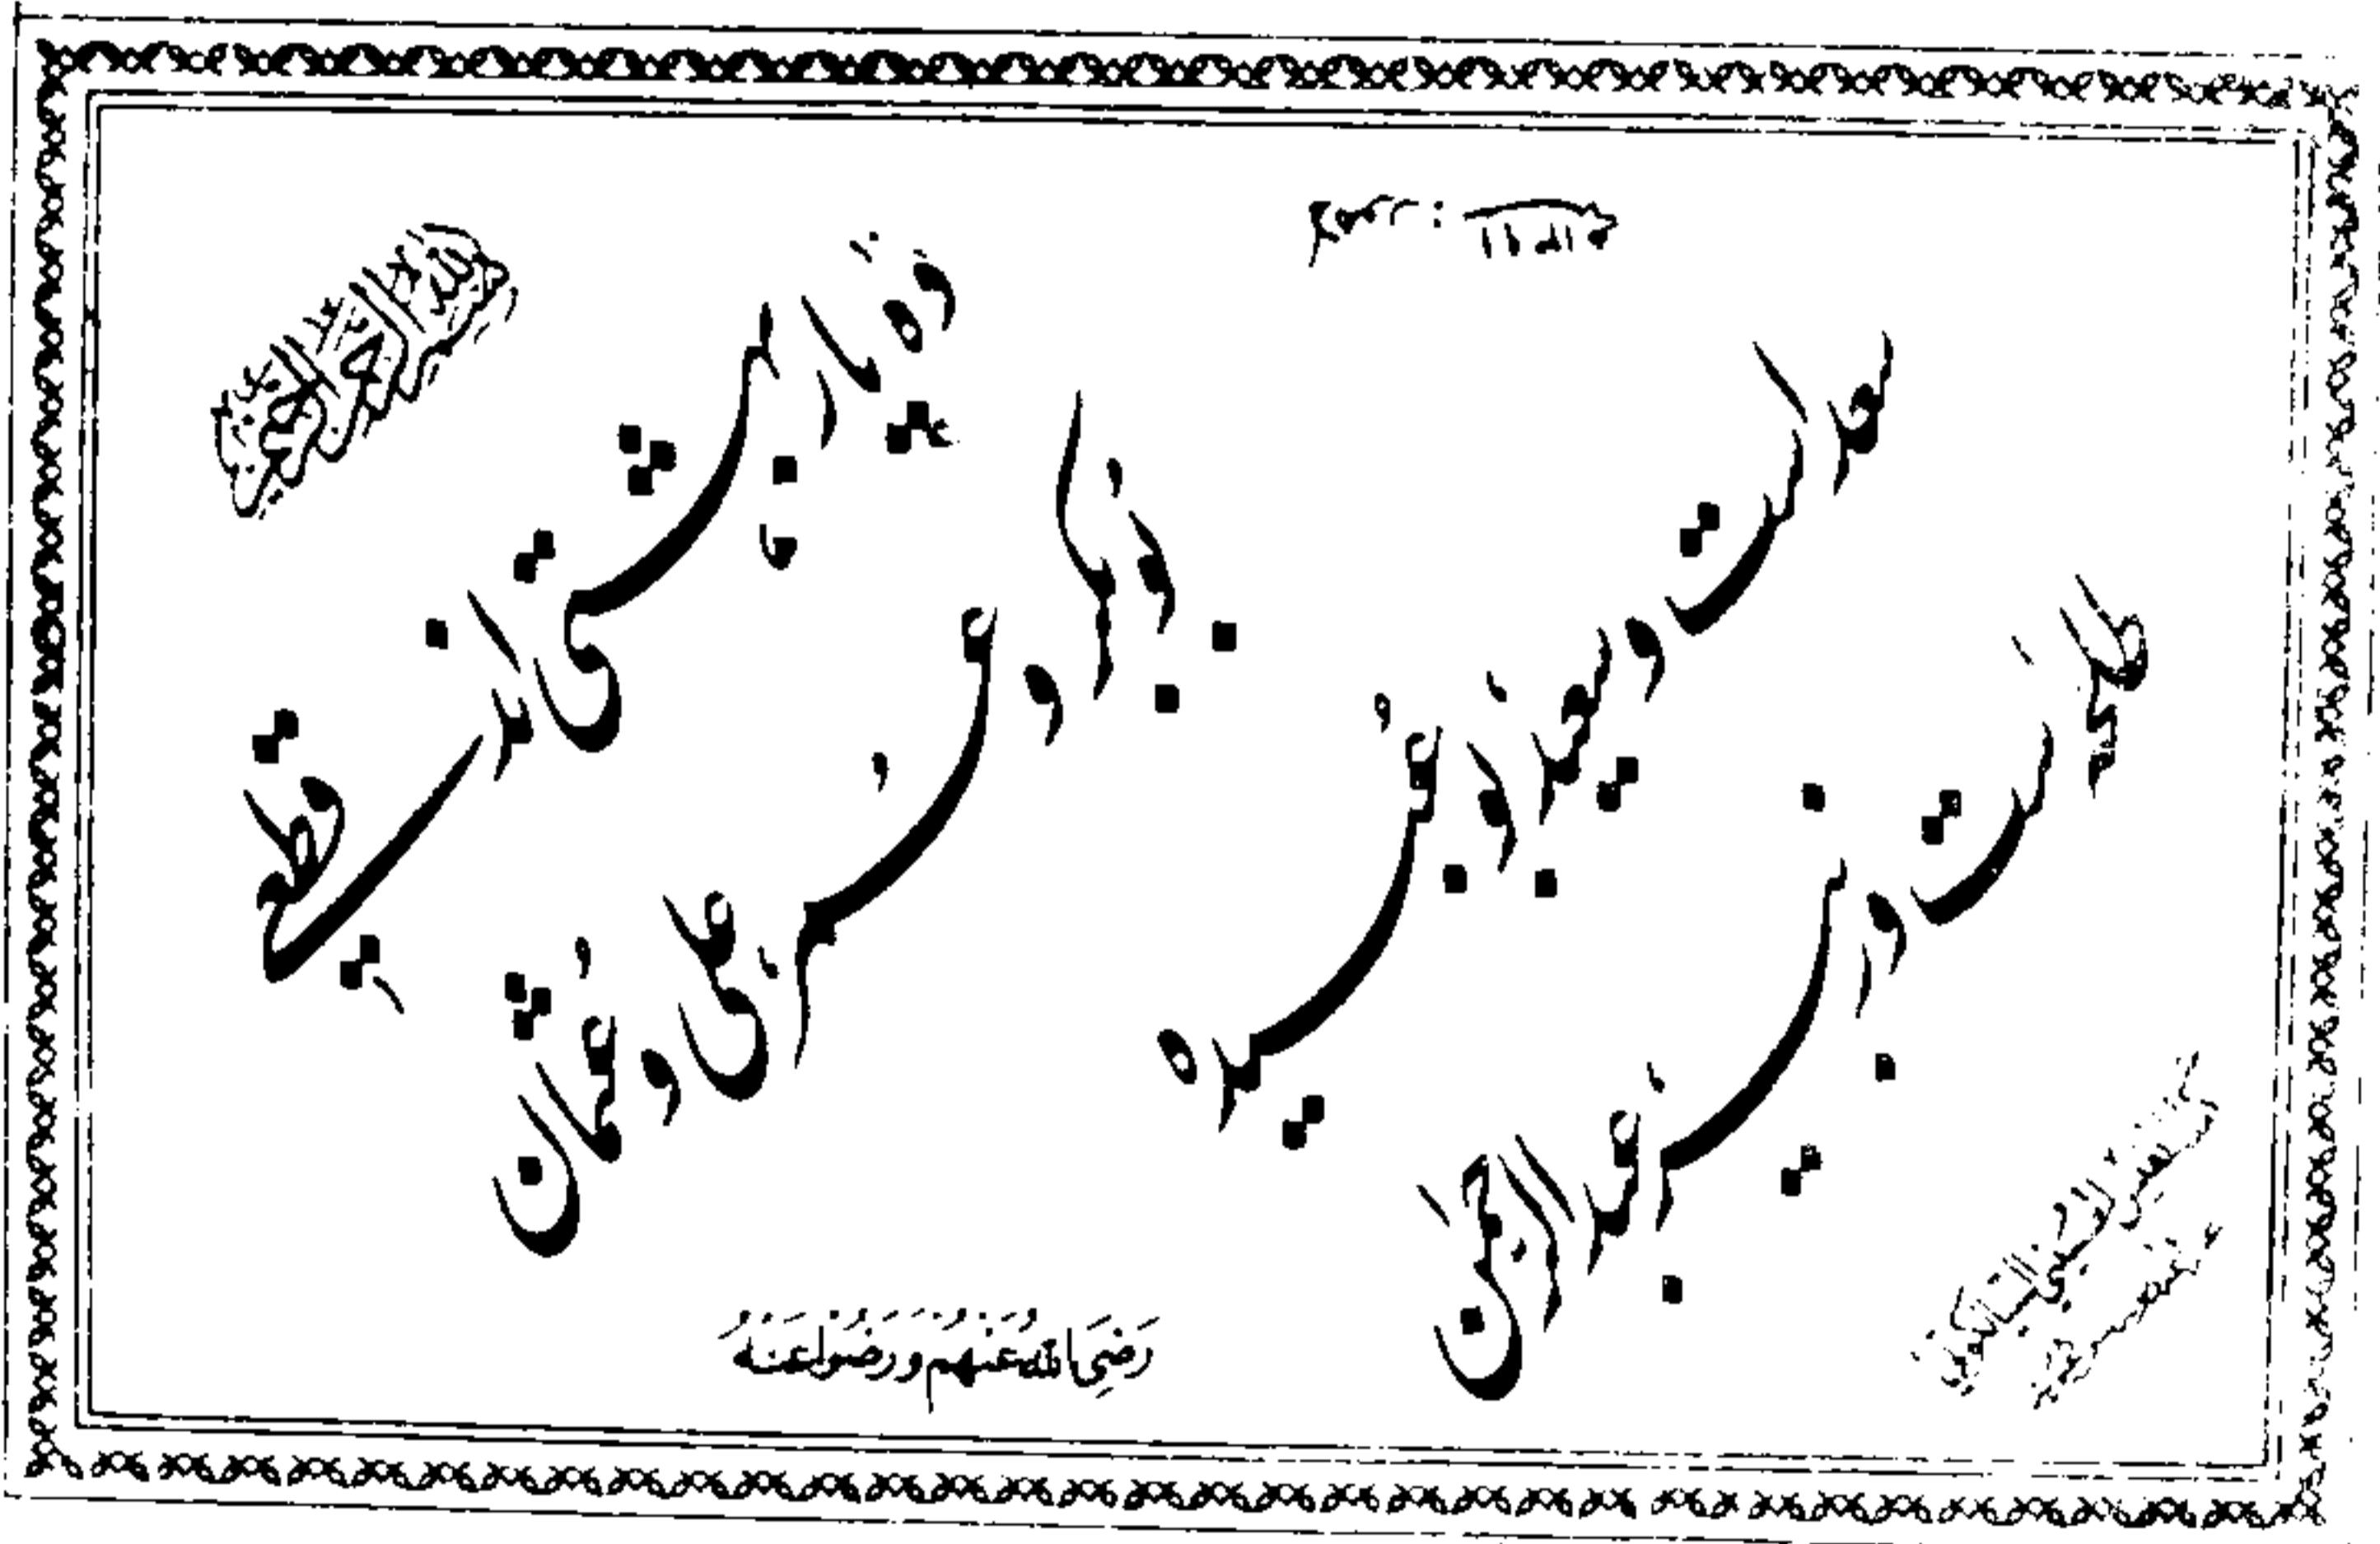 بسم الله الرحمن الرحيم
ده یار بهشتی اند قطعی
بوبکر و عمر علی و عثمان
سعد است و سعید بوعبیده
طلحه است و زبیر عبدالرحمن
رَضِيَ اللهُ عَنْهُمْ وَرَضُوْا عَنْهُ